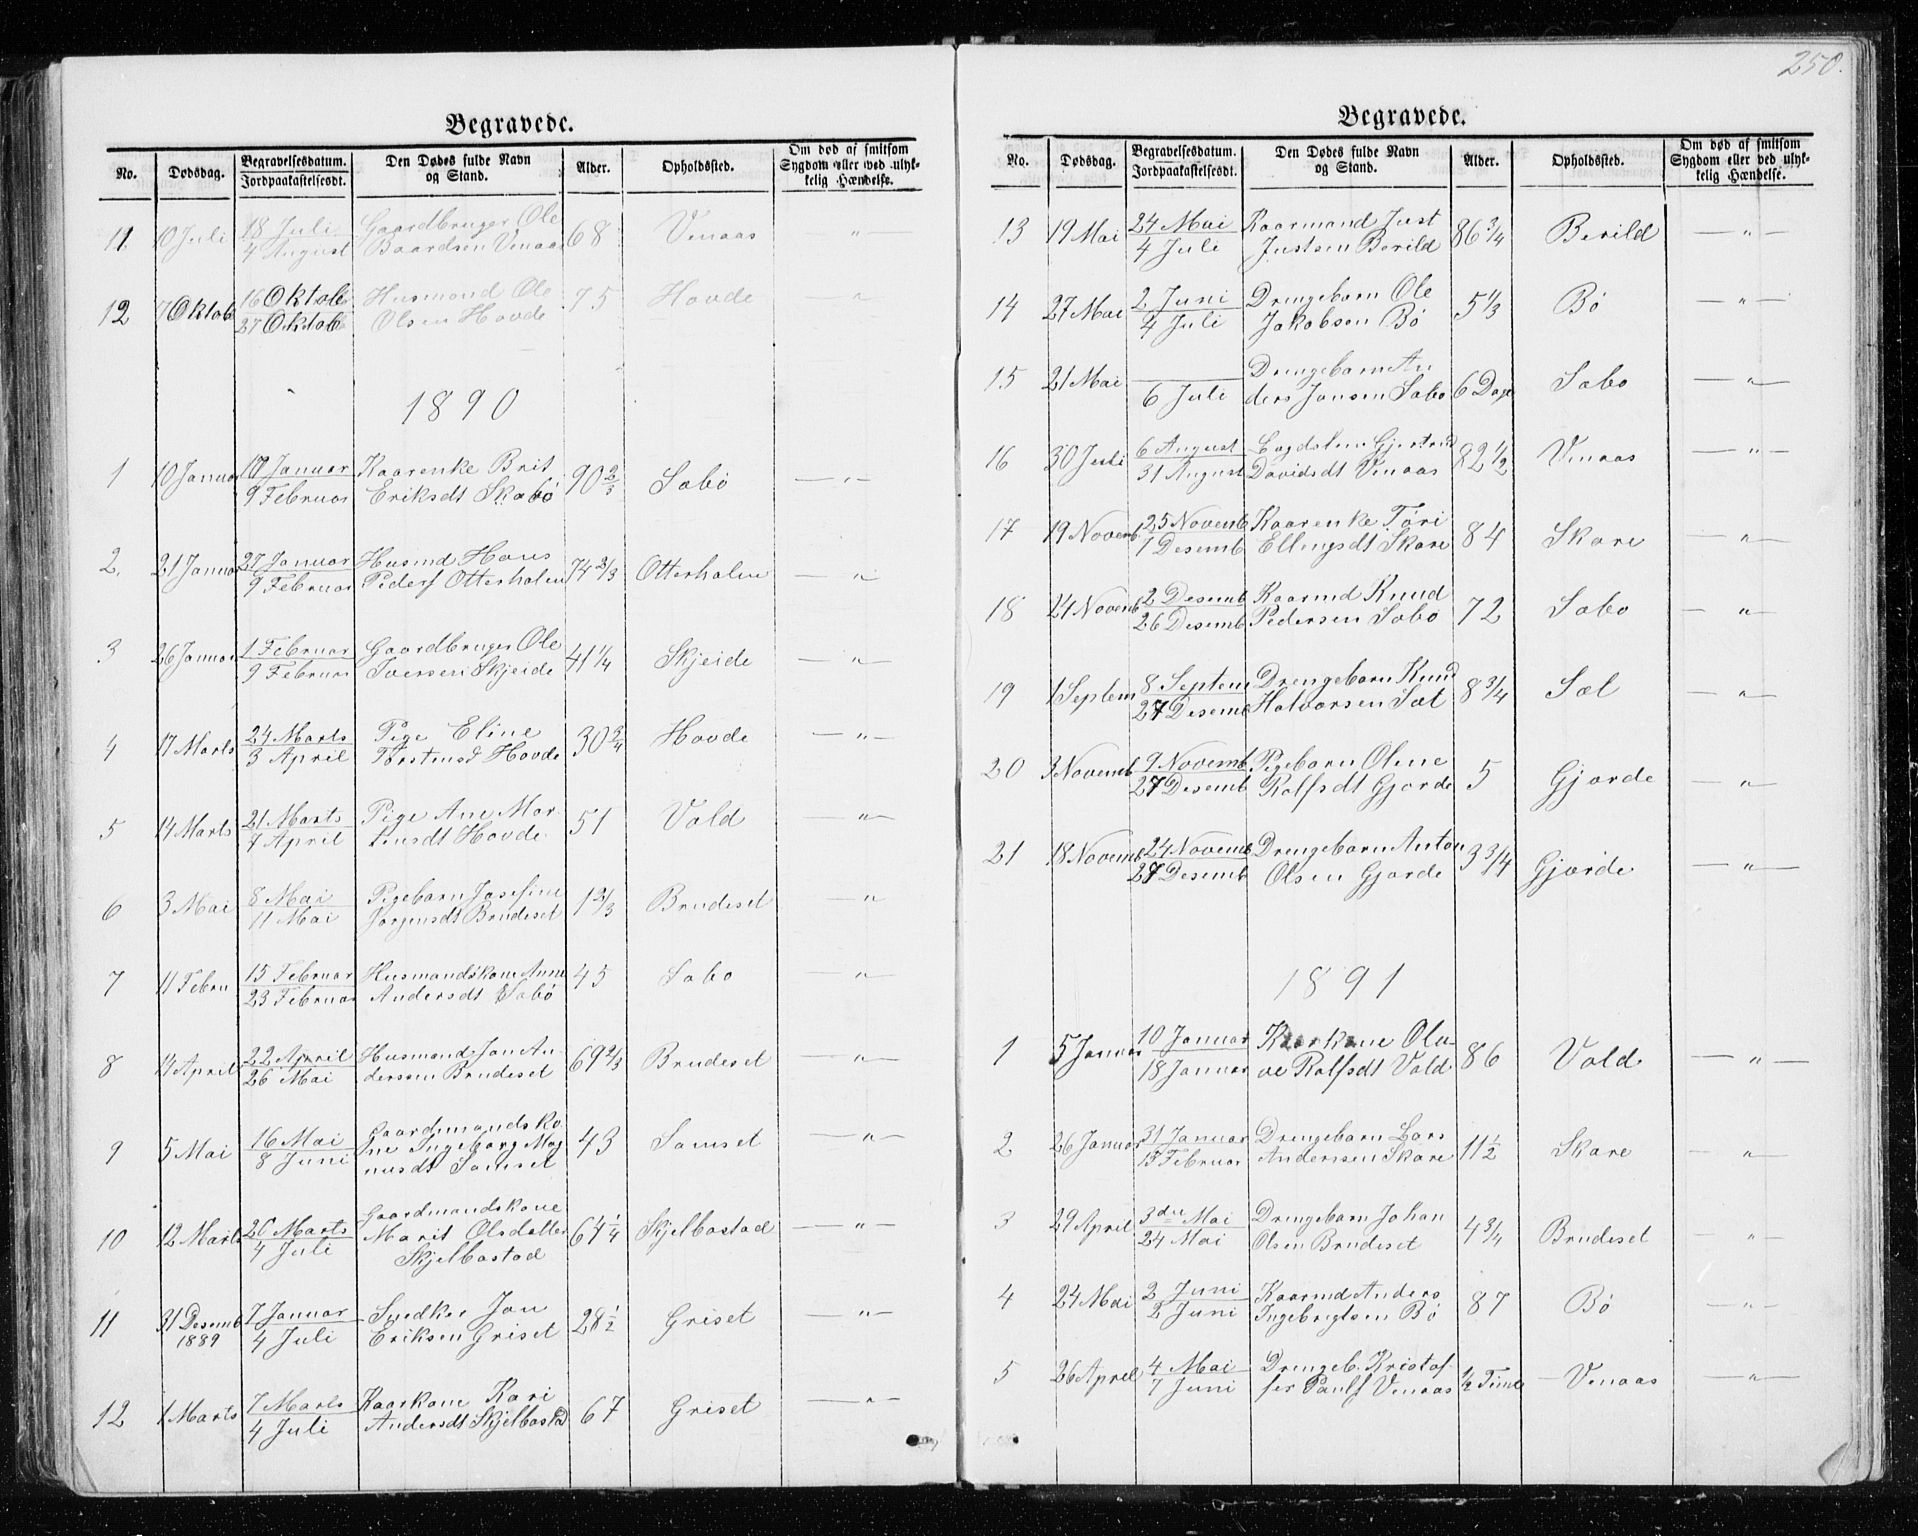 250.
Begravede.
No. Dødsdag. Begravelsesdatum. Jordpaakastelsesdt. Den Dødes fulde Navn og Stand. Alder. Opholdssted. Om død af smitsom Sygdom eller ved ulykkelig Hændelse.
11 10 Juli 18 Juli Gaardbruger Ole 68 Vinaas — " —
4 August Baardsen Vinaas
12 7 Oktob 16 Oktob Husmand Ole 75 Hovde "
27 Oktob Olsen Hovde
1890
1 10 Januar 17 Januar Kaarenke Brit 90 2/3 Sæbø — " —
9 Februar Eriksdt Skabø
2. 21 Januar 27 Januar Husmd Hans 74 2/3 Otterholen — "
9 Februar Peders Otterholen
3 26 Januar 1 Februar Gaardbruger Ole 41 1/4 Skjeide — " —
9 Februar Iversen Skjeide
4 17 Marts 24 Marts Pige Eline 30 3/4 Hovde — " —
3 April Torstensd Hovde
5 14 Marts 21 Marts Pige Ane Mor 51 Vold — " —
7 April tensdt Hovde
6 3 Mai 8 Mai Pigebarn Josefine 1 2/3 Brudeset "
11 Mai Jørgensdt Brudeset
7 11 Febru 15 Februar Husmandskone Anne 45 Sæbø "
23 Februar Andersdt Sæbø
8 14 April 22 April Husmand Jon An 69 2/3 Brudeset — " —
26 Mai derssen Brudeset
9 5 Mai 16 Mai Gaardmandsko 43 Samset — " —
8 Juni ne Ingeborg Mag
nusdt Samset
10 12 Marts 26 Marts Gaardmandskone 64 1/4 Skjelbostad — " —
4 Juli Marit Olsdatter
Skjelbostad
11 31 Desemb 7 Januar Snedker Jon 28 1/2 Griset — " —
1889 4 Juli Eriksen Griset
12 1 Marts 7 Marts Kaarkone Kari 67 Griset — " —
4 Juli Andersdt Skjelbostad
Begravede.
No. Dødsdag. Begravelsesdatum. Jordpaakastelsesdt. Den Dødes fulde Navn og Stand. Alder. Opholdssted. Om død af smitsom Sygdom eller ved ulykkelig Hændelse.
13 19 Mai 24 Mai Kaarmand Just 86 3/4 Berild — " —
4 Juli Justsen Berild
14 27 Mai 2 Juni Drengebarn Ole 5 1/3 Bø — " —
4 Juli Jakobsen Bø
15 21 Mai — Drengebarn An 6 Dage Sæbø — " —
6 Juli ders Jonsen Sæbø
16 30 Juli 6 August Gjertrud 82 1/2 Vinaas — " —
31 August Davidsdt Vinaas
17 19 Novemb. 25 Novemb Kaarenke Tøri 84 Skare — " —
1 Desemb Ellingsdt Skare
18 24 Novemb 2 Desemb Kaarmd Knud 72 Sæbø — " —
26 Desemb Pedersen Sæbø
19 1 Septem 8 Septem Drengebarn Knud 8 3/4 Sæt — " —
27 Desemb Halvorsen Sæt
20 3 Novemb 9 Novemb. Pigebarn Oline 5 Gjørde — " —
27 Desemb Rolfsdt Gjørde
21 18 Novemb 24 Novemb Drengebarn Anton 3 3/4 Gjørde — " —
27 Desemb Olsen Gjørde
1891
1 5 Januar 10 Januar Kaarkone Olu- 86 Vold — " —
18 Januar ve Rolfsdt Vold
2 26 Januar 31 Januar Drengebarn Lars 11 1/2 Skare — " —
15 Februar Anderssen Skare
3 29 April 3die Mai Drengebarn Johan 4 3/4 Brudeset — " —
24 Mai Olsen Brudeset
4 24 Mai 2 Juni Kaarmd Anders 87 Bø — " —
2 Juni Ingebrigtsen Bø
5 26 April 4 Mai Drengeb. Kristof 1/2 Time — Vinaas — " —
7 Juni fer Pauls Vinaas